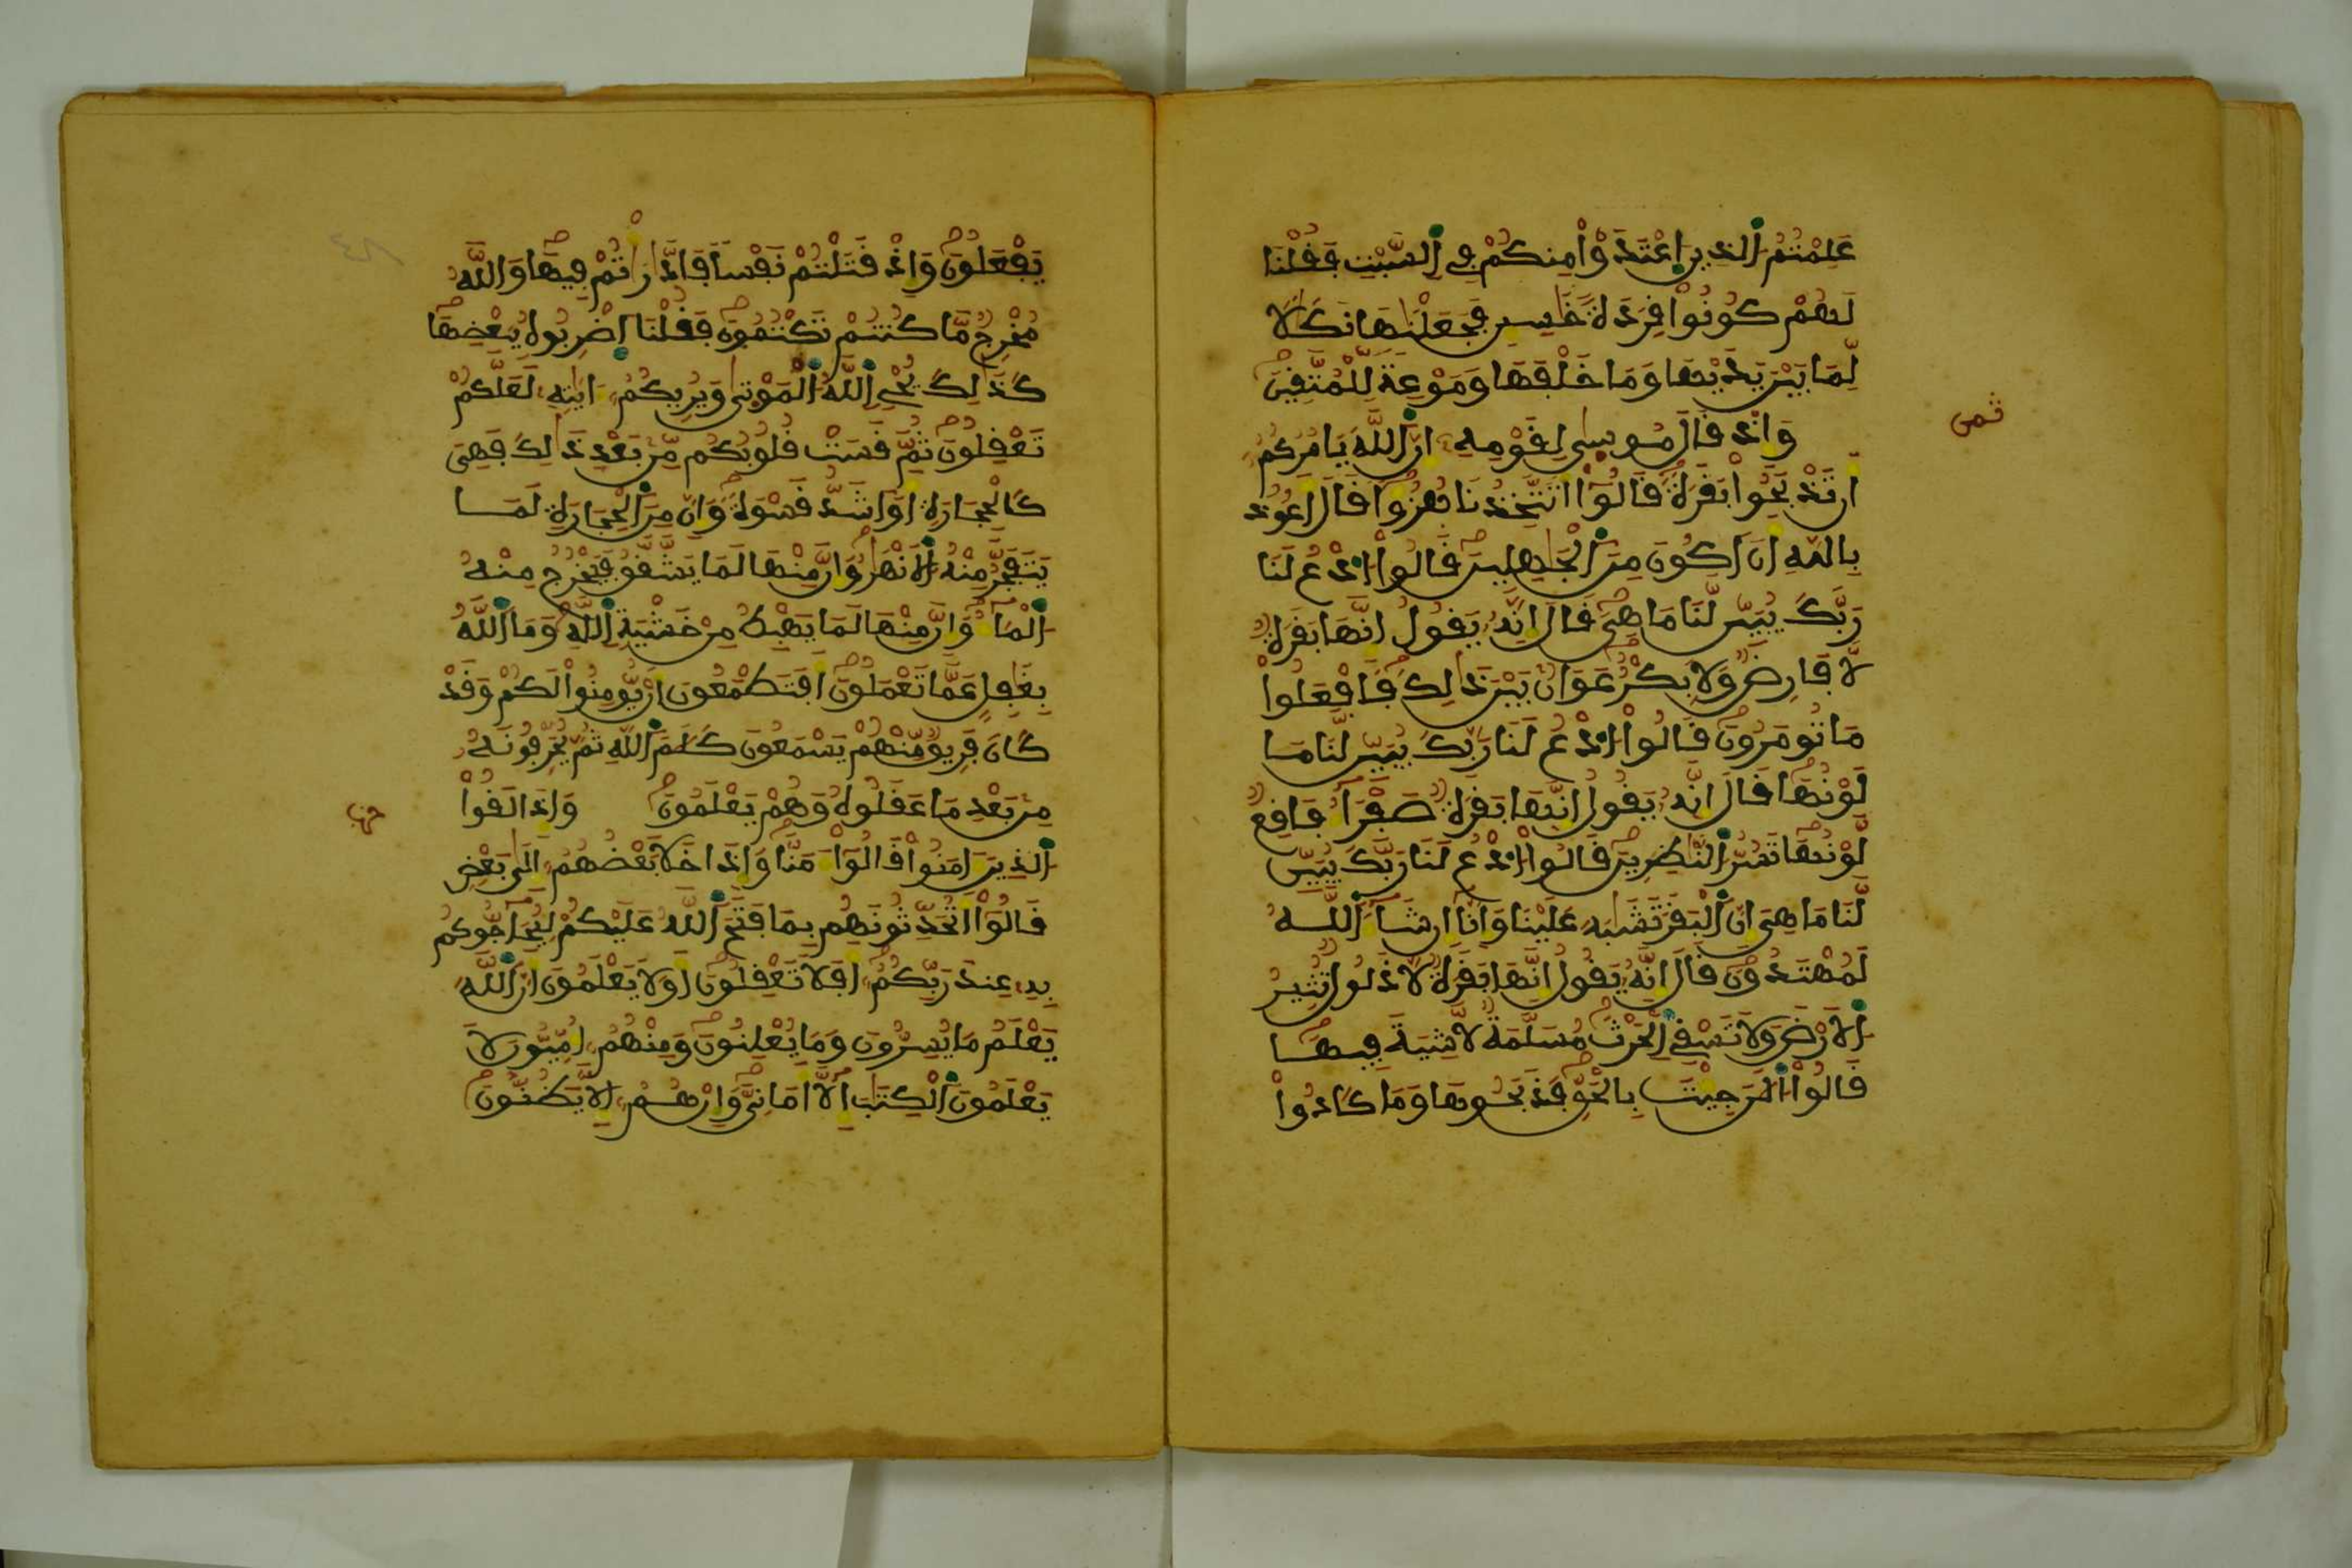 عَلِمْتُمُ الذِينَ اَعْتَدَوْاْ مِنكُمْ فِے السَّبْتِ فَقُلْنَا
لَهُمْ كُونُواْ قِرَدَةً خَٰسِـِٕينَ فَجَعَلْنَٰهَا نَكَٰلاٗ
لِّمَا بَيْنَ يَدَيْهَا وَمَا خَلْفَهَا وَمَوْعِظَةً لِّلْمُتَّقِينَ
وَإِذْ قَالَ مُوسىٰ لِقَوْمِهِۦ إِنَّ اللَّهَ يَامُرُكُمُۥ
أَن تَذْبَحُواْ بَقَرَةً قَالُوٓاْ أَتَتَّخِذُنَا هُزُؤاً قَالَ أَعُوذُ
بِاللَّهِ أَنَ اَكُونَ مِنَ الْجَٰهِلِينَ قَالُواْ ادْعُ لَنَا
رَبَّكَ يُبَيِّن لَّنَا مَا هِىَ قَالَ إِنَّهُۥ يَقُولُ إِنَّهَا بَقَرَةٌ
لَّا فَارِضٌ وَلَا بِكْرٌ عَوَانٌ بَيْنَ ذَٰلِكَ فَافْعَلُواْ
مَا تُومَرُونَ قَالُواْ ادْعُ لَنَا رَبَّكَ يُبَيِّن لَّنَا مَا
لَوْنُهَا قَالَ إِنَّهُۥ يَقُولُ إِنَّهَا بَقَرَةٌ صَفْرَآءُ فَاقِعٌ
لَّوْنُهَا تَسُرُّ النَّٰظِرِينَ قَالُواْ ادْعُ لَنَا رَبَّكَ يُبَيِّن
لَّنَا مَا هِىَ إِنَّ الْبَقَرَ تَشَٰبَهَ عَلَيْنَا وَإِنَّآ إِن شَآءَ اللَّهُ
لَمُهْتَدُونَ قَالَ إِنَّهُۥ يَقُولُ إِنَّهَا بَقَرَةٌ لَّا ذَلُولٌ تُثِيرُ
الَارْضَ وَلَا تَسْقِے الْحَرْثَ مُسَلَّمَةٌ لَّا شِيَةَ فِيهَا
قَالُواْ الَٰنَ جِئْتَ بِالْحَقِّ فَذَبَحُوهَا وَمَا كَادُواْ
ثمن
يَفْعَلُونَ وَإِذْ قَتَلْتُمْ نَفْساً فَادَّٰرَٰتُمْ فِيهَا وَاللَّهُ
مُخْرِجٌ مَّا كُنتُمْ تَكْتُمُونَ فَقُلْنَا اضْرِبُوهُ بِبَعْضِهَا
كَذَٰلِكَ يُحْىِ اللَّهُ الْمَوْتىٰ وَيُرِيكُمُۥ ءَايَٰتِهِۦ لَعَلَّكُمْ
تَعْقِلُونَ ثُمَّ قَسَتْ قُلُوبُكُم مِّنۢ بَعْدِ ذَٰلِكَ فَهِىَ
كَالْحِجَارَةِ أَوَ اَشَدُّ قَسْوَةً وَإِنَّ مِنَ الْحِجَارَةِ لَمَا
يَتَفَجَّرُ مِنْهُ الَانْهَٰرُ وَإِنَّ مِنْهَا لَمَا يَشَّقَّقُ فَيَخْرُجُ مِنْهُ
الْمَآءُ وَإِنَّ مِنْهَا لَمَا يَهْبِطُ مِنْ خَشْيَةِ اللَّهِ وَمَا اللَّهُ
بِغَٰفِلٍ عَمَّا تَعْمَلُونَ أَفَتَطْمَعُونَ أَنْ يُّومِنُواْ لَكُمْ وَقَدْ
كَانَ فَرِيقٌ مِّنْهُمْ يَسْمَعُونَ كَلَٰمَ اللَّهِ ثُمَّ يُحَرِّفُونَهُۥ
مِنۢ بَعْدِ مَا عَقَلُوهُ وَهُمْ يَعْلَمُونَ وَإِذَا لَقُواْ
الذِينَ ءَامَنُواْ قَالُوٓاْ ءَامَنَّا وَإِذَا خَلَا بَعْضُهُمُۥٓ إِلَىٰ بَعْضٍ
قَالُوٓاْ أَتُحَدِّثُونَهُم بِمَا فَتَحَ اللَّهُ عَلَيْكُمْ لِيُحَآجُّوكُم
بِهِۦ عِندَ رَبِّكُمُۥٓ أَفَلَا تَعْقِلُونَ أَوَلَا يَعْلَمُونَ أَنَّ اللَّهَ
يَعْلَمُ مَا يُسِرُّونَ وَمَا يُعْلِنُونَ وَمِنْهُمُۥٓ أُمِّيُّونَ لَا
يَعْلَمُونَ الْكِتَٰبَ إِلَّآ أَمَانِىَّ وَإِنْ هُمُۥٓ إِلَّا يَظُنُّونَ
حزب